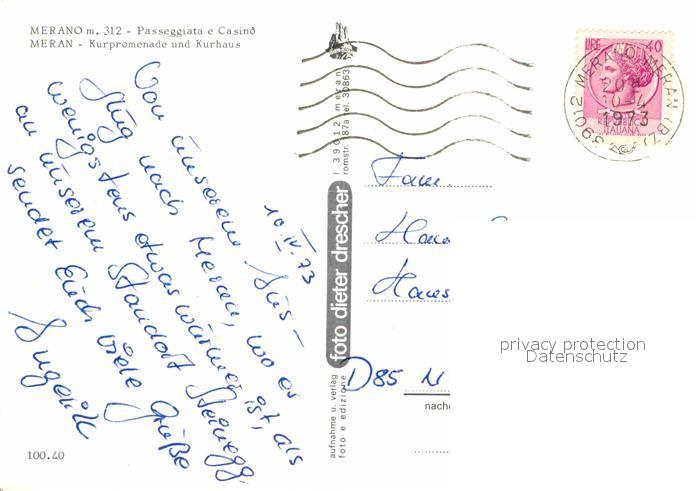 MERANO m. 312 - Passeggiata e Casinò
MERAN - Kurpromenade und Kurhaus
10.IV.73
Von unserem Aus-
flug nach Meran, wo es
wenigstens etwas wärmer ist, als
an unserem Standort Steinegg,
sendet Euch viele Grüße
Ingelill
100.40
foto dieter drescher
I 39012 meran
romstr. 187a tel. 30863
aufnahme u. verlag
foto e edizione
LIRE 40
ITALIANA
39012 MERANO-MERAN (BZ)
1973
Fam.
Hans
D85 N
nache
privacy protection
Datenschutz